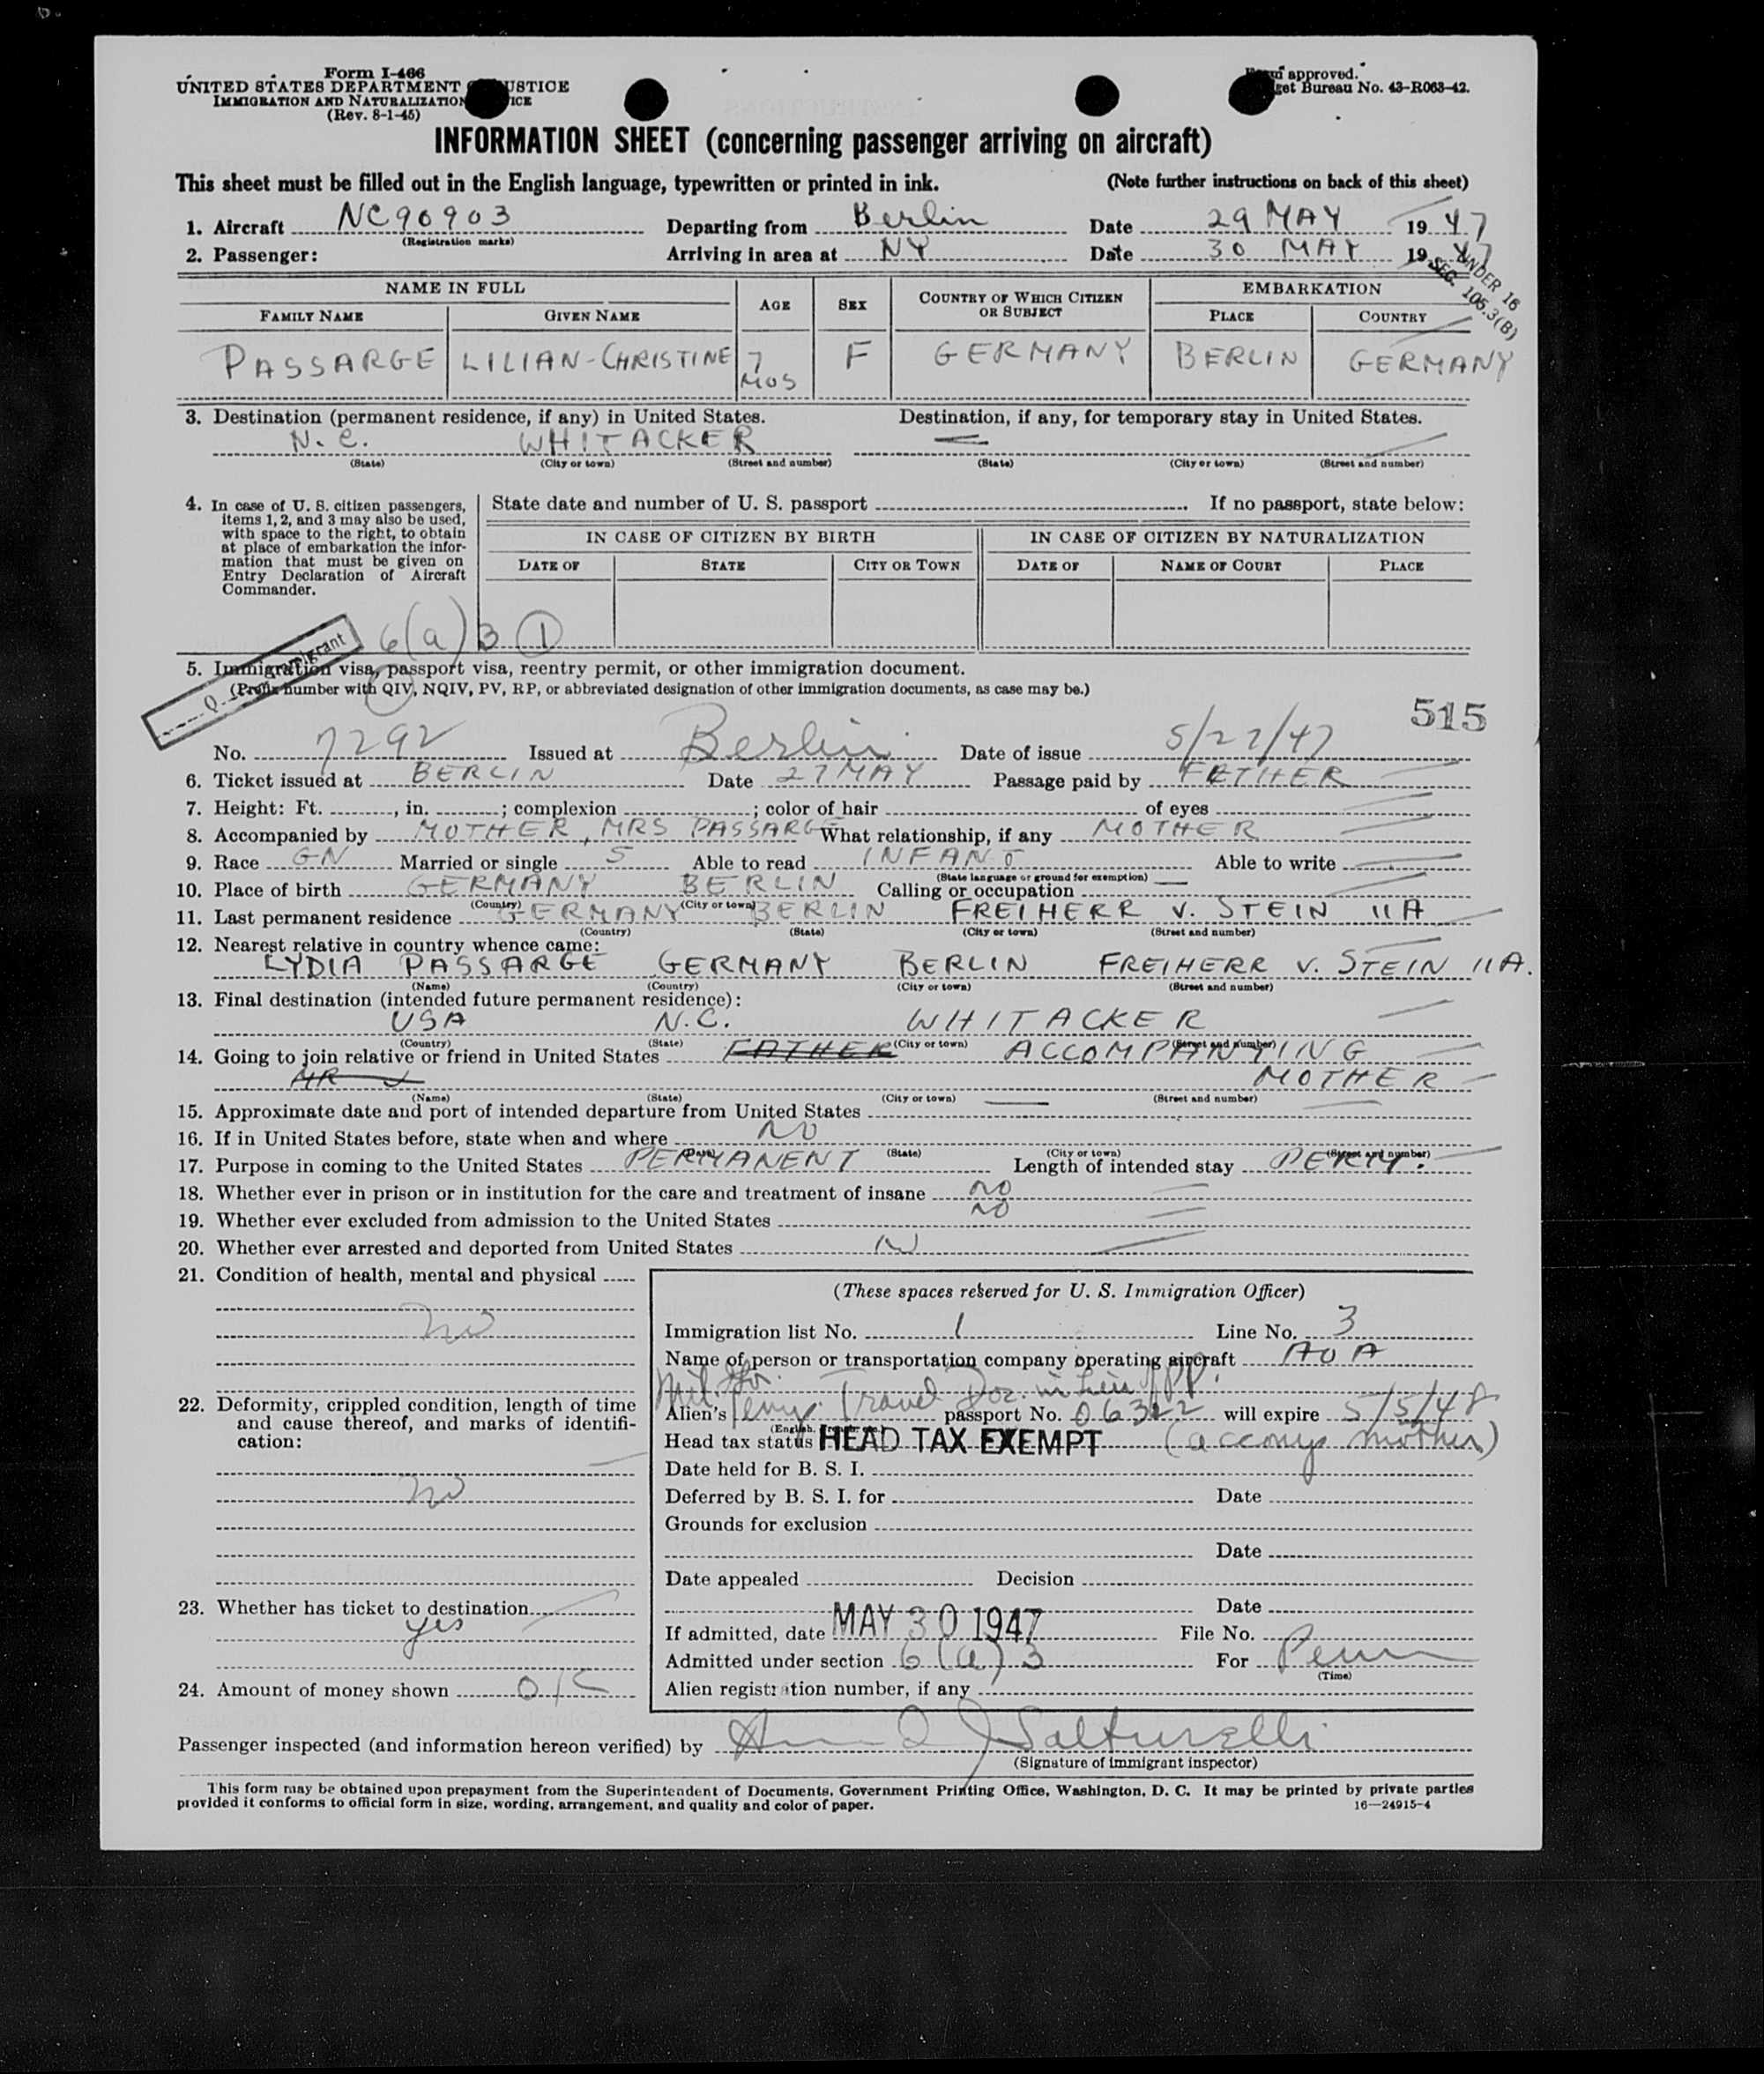 Form I-466
UNITED STATES DEPARTMENT JUSTICE
IMMIGRATION AND NATURALIZATION
(Rev. 8-1-45)
approved.
Bureau No. 43-R063-42.
INFORMATION SHEET (concerning passenger arriving on aircraft)
This sheet must be filled out in the English language, typewritten or printed in ink. (Note further instructions on back of this sheet)
1. Aircraft NC90903 Departing from Berlin Date 29 MAY 1947
(Registration marks)
2. Passenger: Arriving in area at NY Date 30 MAY 1947
UNDER 16
SEC. 105.3(B)
NAME IN FULL AGE SEX COUNTRY OF WHICH CITIZEN OR SUBJECT EMBARKATION
FAMILY NAME GIVEN NAME PLACE COUNTRY
PASSARGE LILIAN-CHRISTINE 7 MOS F GERMANY BERLIN GERMANY
3. Destination (permanent residence, if any) in United States. Destination, if any, for temporary stay in United States.
N.C. WHITACKER —
(State) (City or town) (Street and number) (State) (City or town) (Street and number)
4. In case of U. S. citizen passengers, items 1, 2, and 3 may also be used, with space to the right, to obtain at place of embarkation the information that must be given on Entry Declaration of Aircraft Commander.
State date and number of U. S. passport If no passport, state below:
IN CASE OF CITIZEN BY BIRTH IN CASE OF CITIZEN BY NATURALIZATION
DATE OF STATE CITY OR TOWN DATE OF NAME OF COURT PLACE
6(a)3 1
5. Immigration visa, passport visa, reentry permit, or other immigration document.
(Prefix number with QIV, NQIV, PV, RP, or abbreviated designation of other immigration documents, as case may be.)
515
No. 7292 Issued at Berlin Date of issue 5/27/47
6. Ticket issued at BERLIN Date 27 MAY Passage paid by FATHER
7. Height: Ft. , in. ; complexion ; color of hair of eyes
8. Accompanied by MOTHER, MRS PASSARGE What relationship, if any MOTHER
9. Race GN Married or single S Able to read INFANT Able to write
(State language or ground for exemption)
10. Place of birth GERMANY BERLIN Calling or occupation —
(Country) (City or town)
11. Last permanent residence GERMANY BERLIN FREIHERR V. STEIN 11A
(Country) (State) (City or town) (Street and number)
12. Nearest relative in country whence came:
LYDIA PASSARGE GERMANY BERLIN FREIHERR V. STEIN 11A.
(Name) (Country) (City or town) (Street and number)
13. Final destination (intended future permanent residence):
USA N.C. WHITACKER
(Country) (State) (City or town) (Street and number)
14. Going to join relative or friend in United States FATHER ACCOMPANYING
MR MOTHER
(Name) (State) (City or town) (Street and number)
15. Approximate date and port of intended departure from United States —
16. If in United States before, state when and where NO
(Date) (State) (City or town) (Street and number)
17. Purpose in coming to the United States PERMANENT Length of intended stay PERM.
18. Whether ever in prison or in institution for the care and treatment of insane NO
19. Whether ever excluded from admission to the United States NO
20. Whether ever arrested and deported from United States NO
21. Condition of health, mental and physical
no
22. Deformity, crippled condition, length of time and cause thereof, and marks of identification:
no
23. Whether has ticket to destination
yes
24. Amount of money shown
(These spaces reserved for U. S. Immigration Officer)
Immigration list No. 1 Line No. 3
Name of person or transportation company operating aircraft AOA
Temp. Travel Doc. in lieu of PP.
Alien's passport No. 06322 will expire 5/5/48
Head tax status HEAD TAX EXEMPT (accomp mother)
Date held for B. S. I.
Deferred by B. S. I. for Date
Grounds for exclusion
Date
Date appealed Decision
Date
If admitted, date MAY 30 1947 File No.
Admitted under section 6(a)3 For Perm
(Time)
Alien registration number, if any
Passenger inspected (and information hereon verified) by
(Signature of immigrant inspector)
This form may be obtained upon prepayment from the Superintendent of Documents, Government Printing Office, Washington, D. C. It may be printed by private parties
provided it conforms to official form in size, wording, arrangement, and quality and color of paper. 16—24915-4